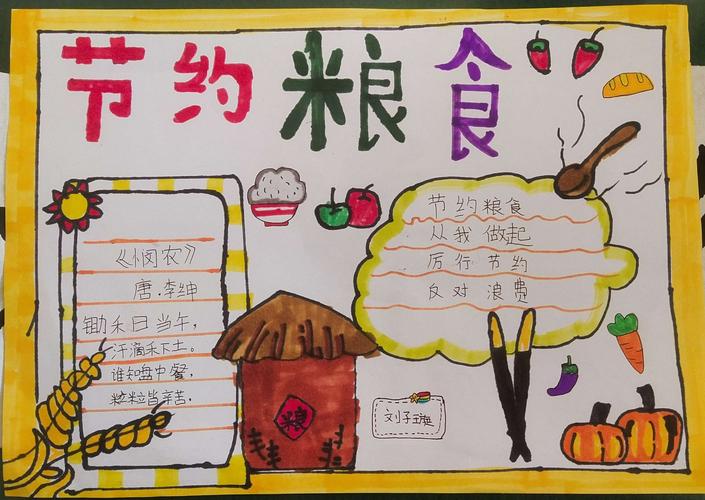 节约粮食
《悯农》
唐.李绅
锄禾日当午，
汗滴禾下土。
谁知盘中餐，
粒粒皆辛苦.
节约粮食
从我做起
厉行节约
反对浪费
粮
刘子琏